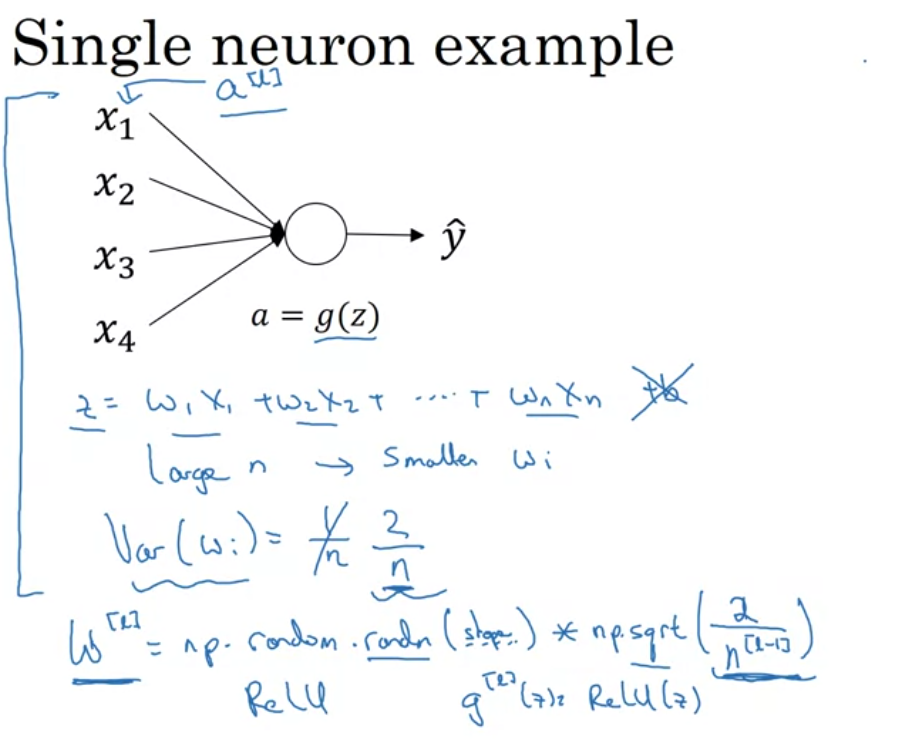 Single neuron example
a^[l]
x₁
x₂
x₃
x₄
ŷ
a = g(z)
z = w₁x₁ + w₂x₂ + ···· + wₙxₙ +b
Large n → Smaller wᵢ
Var(wᵢ) = 1/n 2/n
W^[l] = np.random.randn(shape..) * np.sqrt(2/n^[l-1])
ReLU g^[l](z) = ReLU(z)